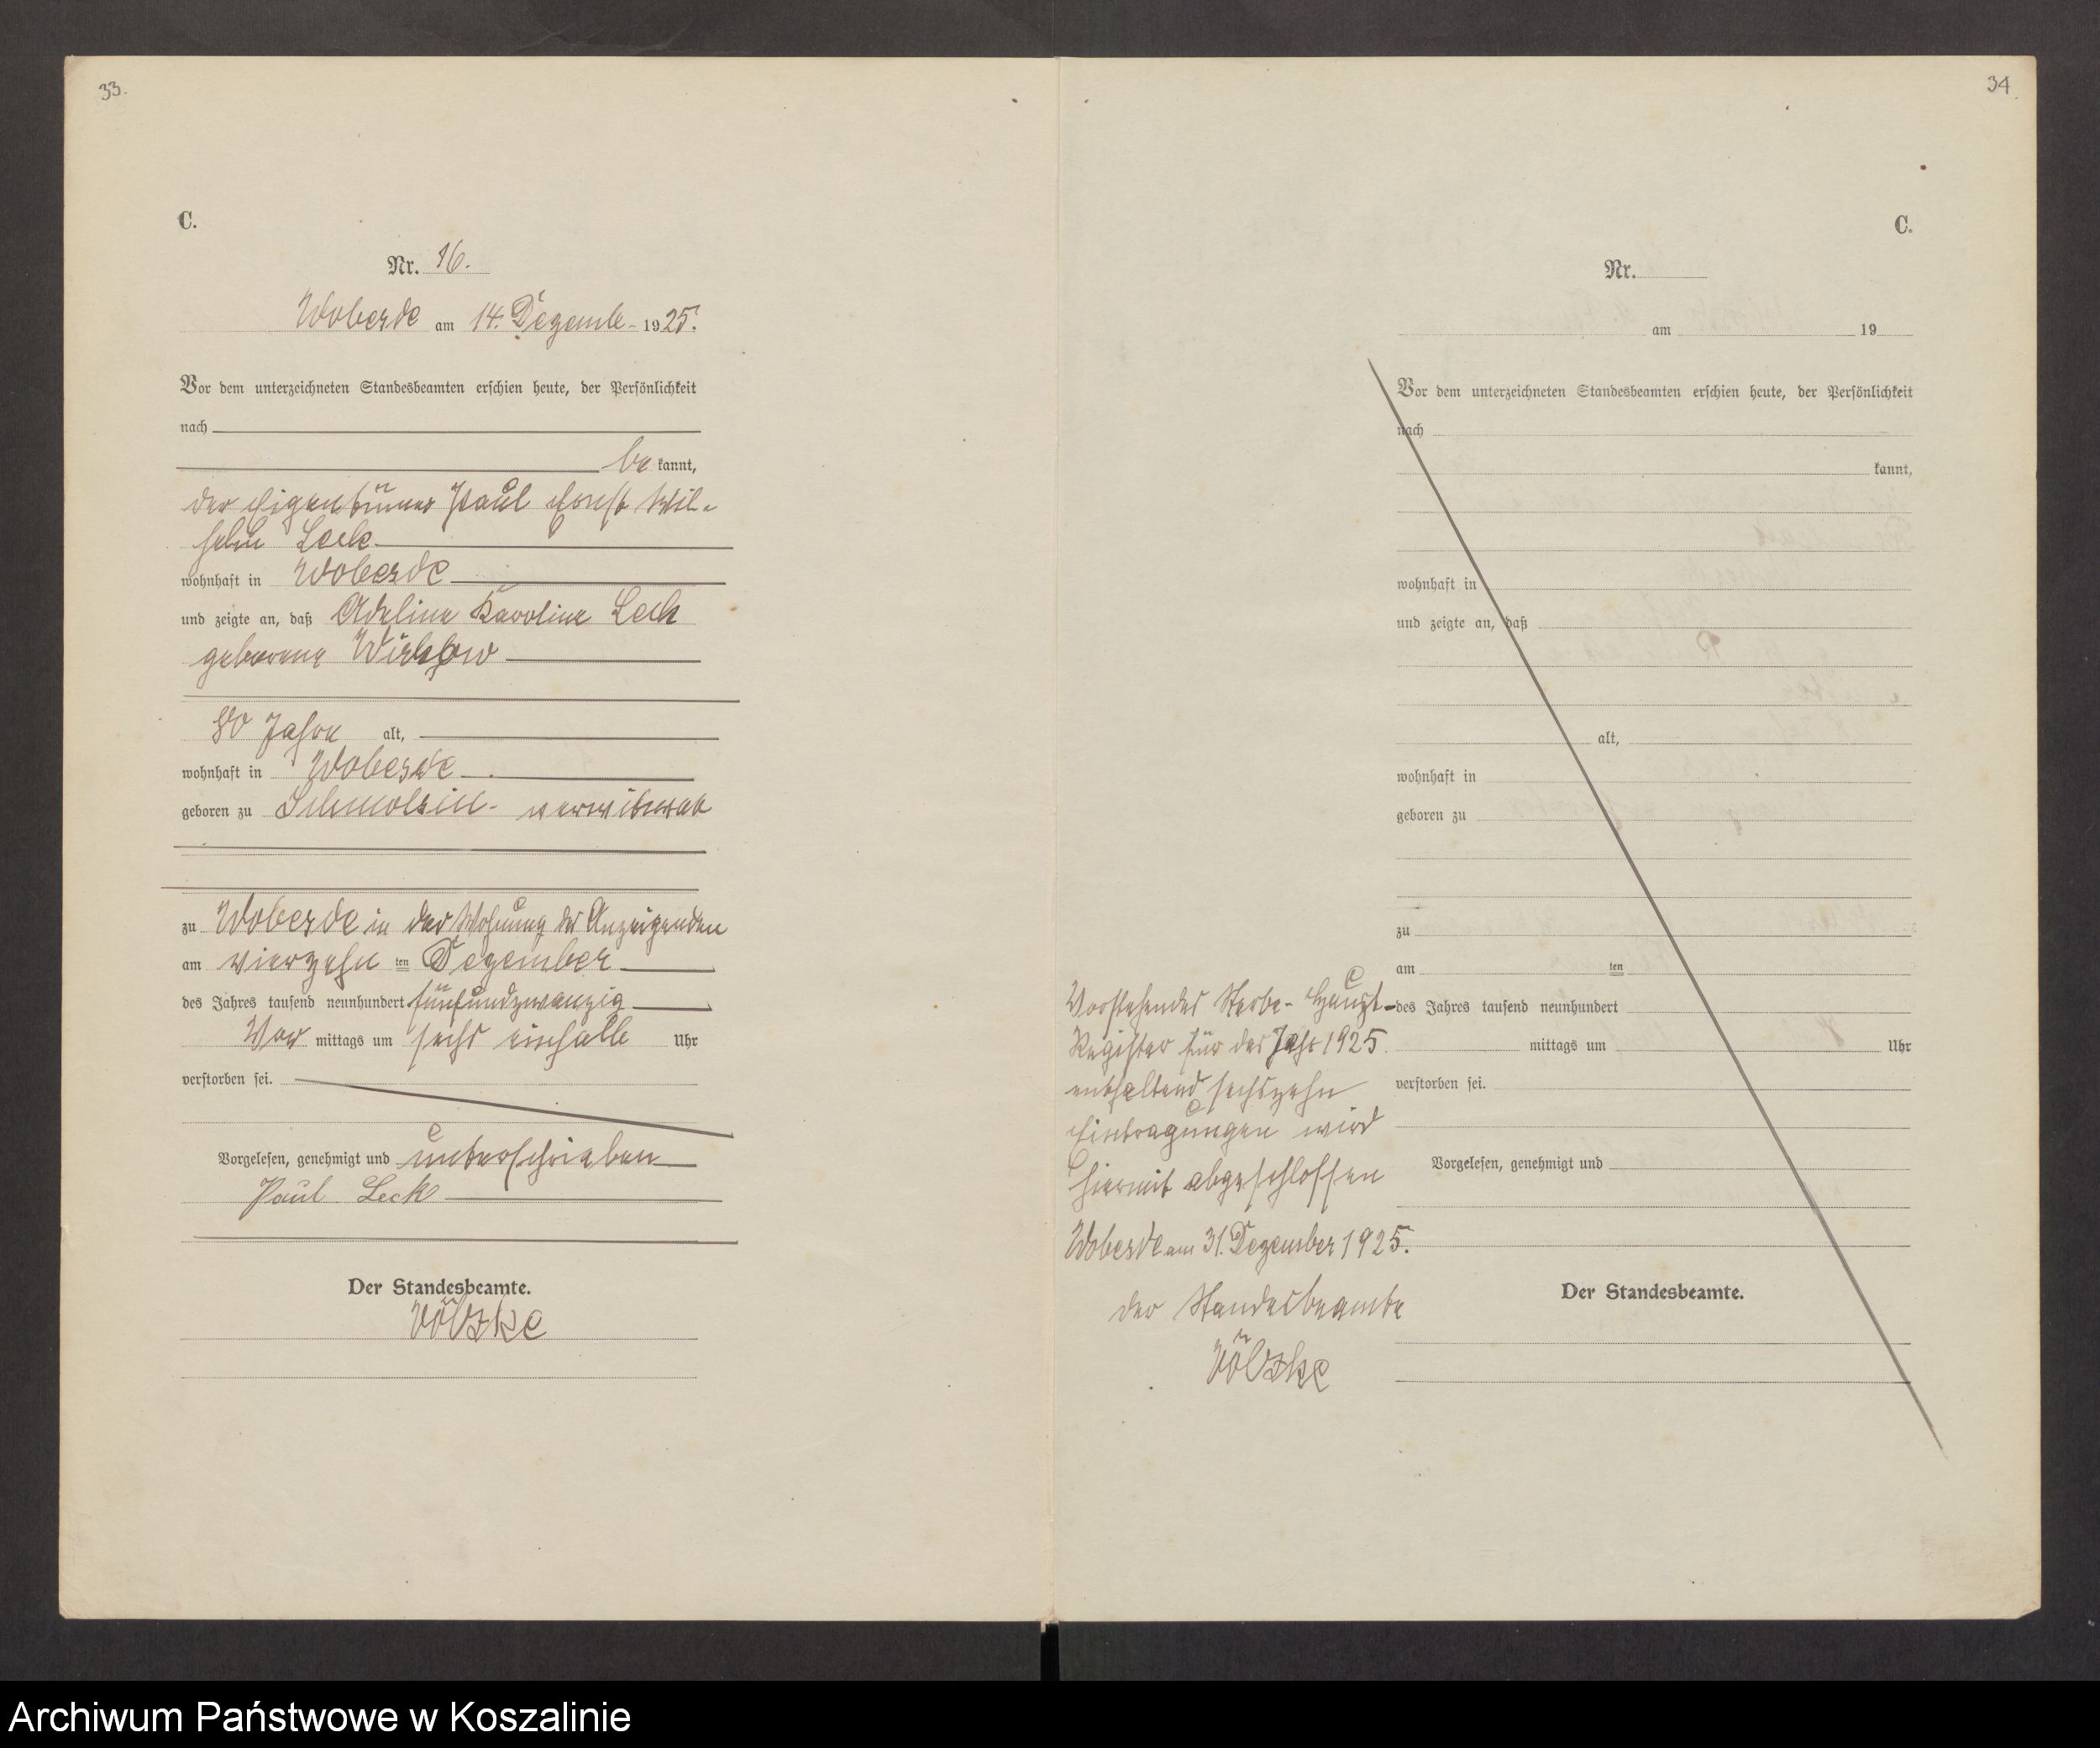 33.
C.
Nr. 16.
Woberde am 14. Dezembe- 1925.
Vor dem unterzeichneten Standesbeamten erschien heute, der Persönlichkeit
nach
be kannt,
der Eigentümer Paul Ernst Wil-
helm Leck
wohnhaft in Woberde
und zeigte an, daß Adeline Karoline Leck
geborene
80 Jahre alt,
wohnhaft in Woberde
geboren zu Schmolsin - verwitwet
zu Woberde in der Wohnung des Anzeigenden
am vierzehn ten Dezember
des Jahres tausend neunhundert fünfundzwanzig
Vor mittags um sechs einhalb Uhr
verstorben sei.
Vorgelesen, genehmigt und unterschrieben
Paul Leck
Der Standesbeamte.
Völzke
34.
C.
Nr.
am 19
Vor dem unterzeichneten Standesbeamten erschien heute, der Persönlichkeit
nach
kannt,
wohnhaft in
und zeigte an, daß
alt,
wohnhaft in
geboren zu
zu
am ten
des Jahres tausend neunhundert
mittags um Uhr
verstorben sei.
Vorgelesen, genehmigt und
Der Standesbeamte.
Vorstehendes Sterbe- Haupt-
Register für das Jahr 1925
enthaltend sechszehn
Eintragungen wird
hiermit abgeschlossen
Woberde am 31. Dezember 1925.
der Standesbeamte
Völzke
Archiwum Państwowe w Koszalinie